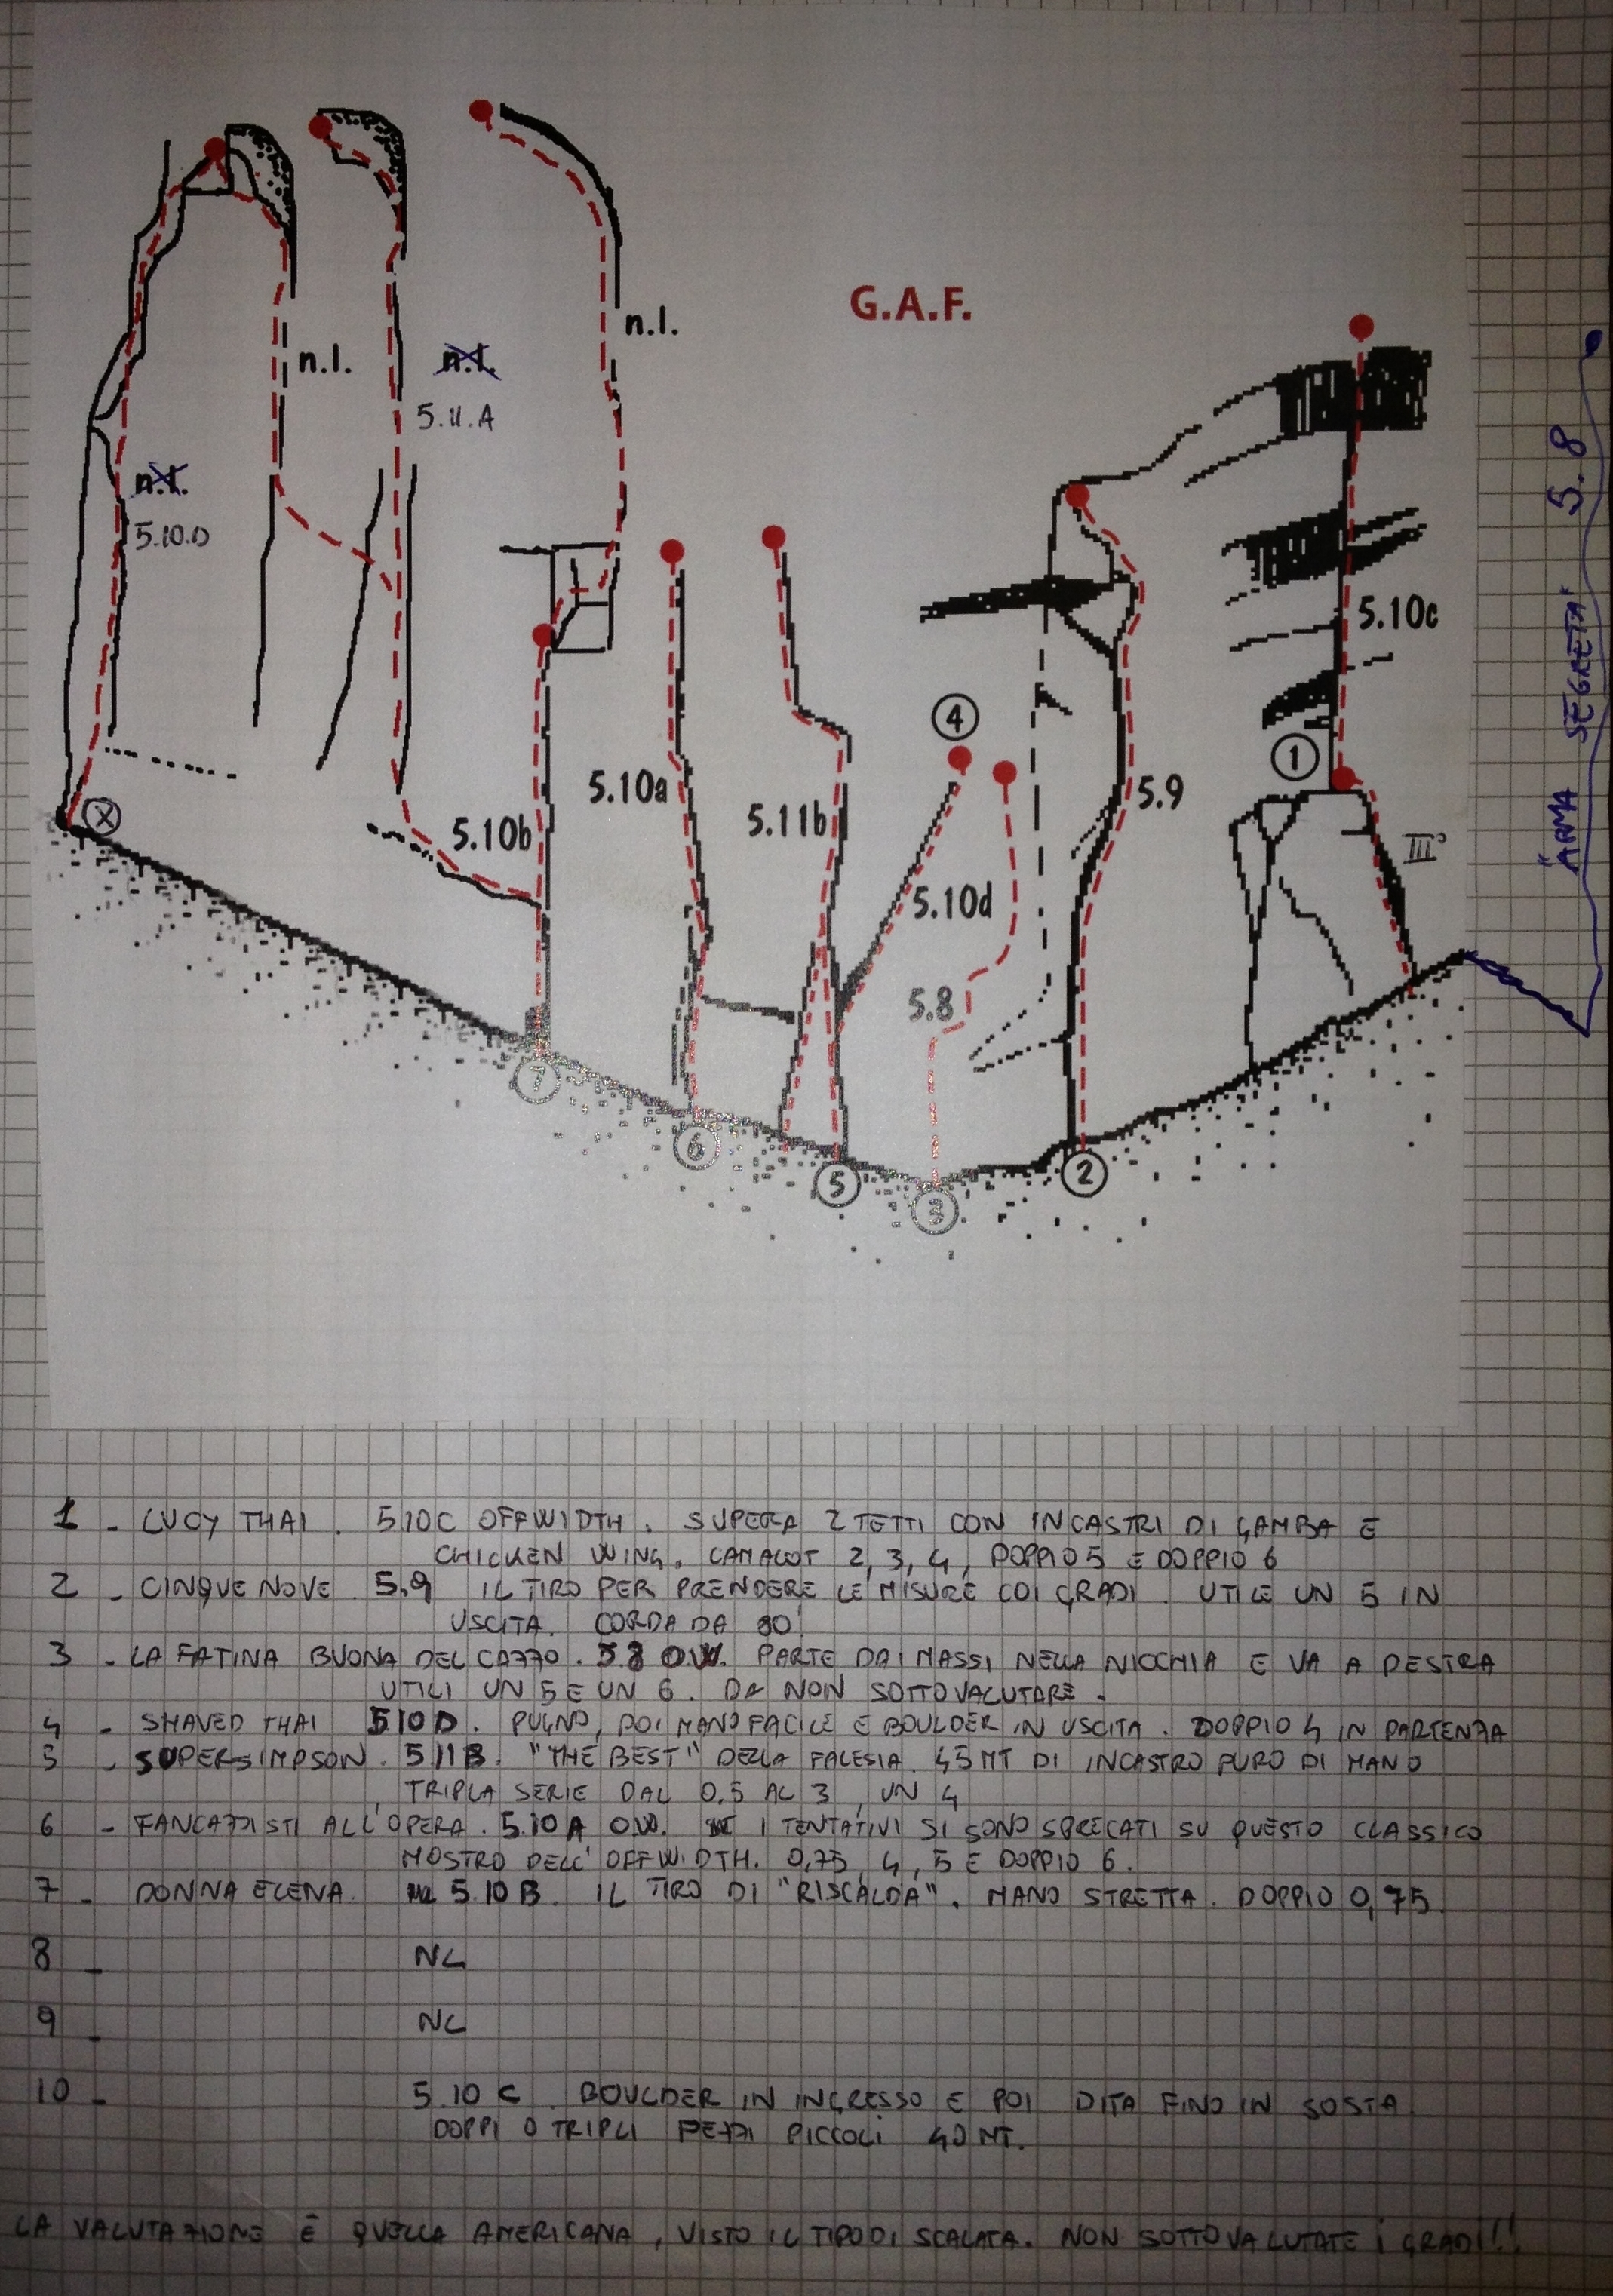 G.A.F.
n.l.
n.l.
n.l.
5.11.A
n.l.
5.10.D
5.10c
5.10a
5.10b
5.11b
5.10d
5.9
5.8
III°
X
1
2
3
4
5
6
7
ARMA SEGRETA 5.8
1 - LUCY THAI. 5.10C OFFWIDTH. SUPERA 2 TETTI CON INCASTRI DI GAMBA E
CHICKEN WING. CAMALOT 2, 3, 4, DOPPIO 5 E DOPPIO 6
2 - CINQUE NOVE 5.9 IL TIRO PER PRENDERE LE MISURE COI GRADI. UTILE UN 5 IN
USCITA. CORDA DA 80!
3 - LA FATINA BUONA DEL CAZZO. 5.8 O.W. PARTE DAI MASSI NELLA NICCHIA E VA A DESTRA
UTILI UN 5 E UN 6. DA NON SOTTOVALUTARE.
4 - SHAVED THAI 5.10D. PUGNO, POI MANO FACILE E BOULDER IN USCITA. DOPPIO 4 IN PARTENZA
5 - SUPERSIMPSON. 5.11B. "THE BEST" DELLA FALESIA. 45 MT DI INCASTRO PURO DI MANO
TRIPLA SERIE DAL 0,5 AL 3, UN 4
6 - FANCAZZISTI ALL'OPERA. 5.10A O.W. I TENTATIVI SI SONO SPRECATI SU QUESTO CLASSICO
MOSTRO DELL'OFFWIDTH. 0,75, 4, 5 E DOPPIO 6.
7 - DONNA ELENA. 5.10B. IL TIRO DI "RISCALDA". MANO STRETTA. DOPPIO 0,75
8 - NL
9 - NL
10 - 5.10C. BOULDER IN INGRESSO E POI DITA FINO IN SOSTA
DOPPI O TRIPLI PEZZI PICCOLI 40 MT.
LA VALUTAZIONE È QUELLA AMERICANA, VISTO IL TIPO DI SCALATA. NON SOTTOVALUTATE I GRADI!!